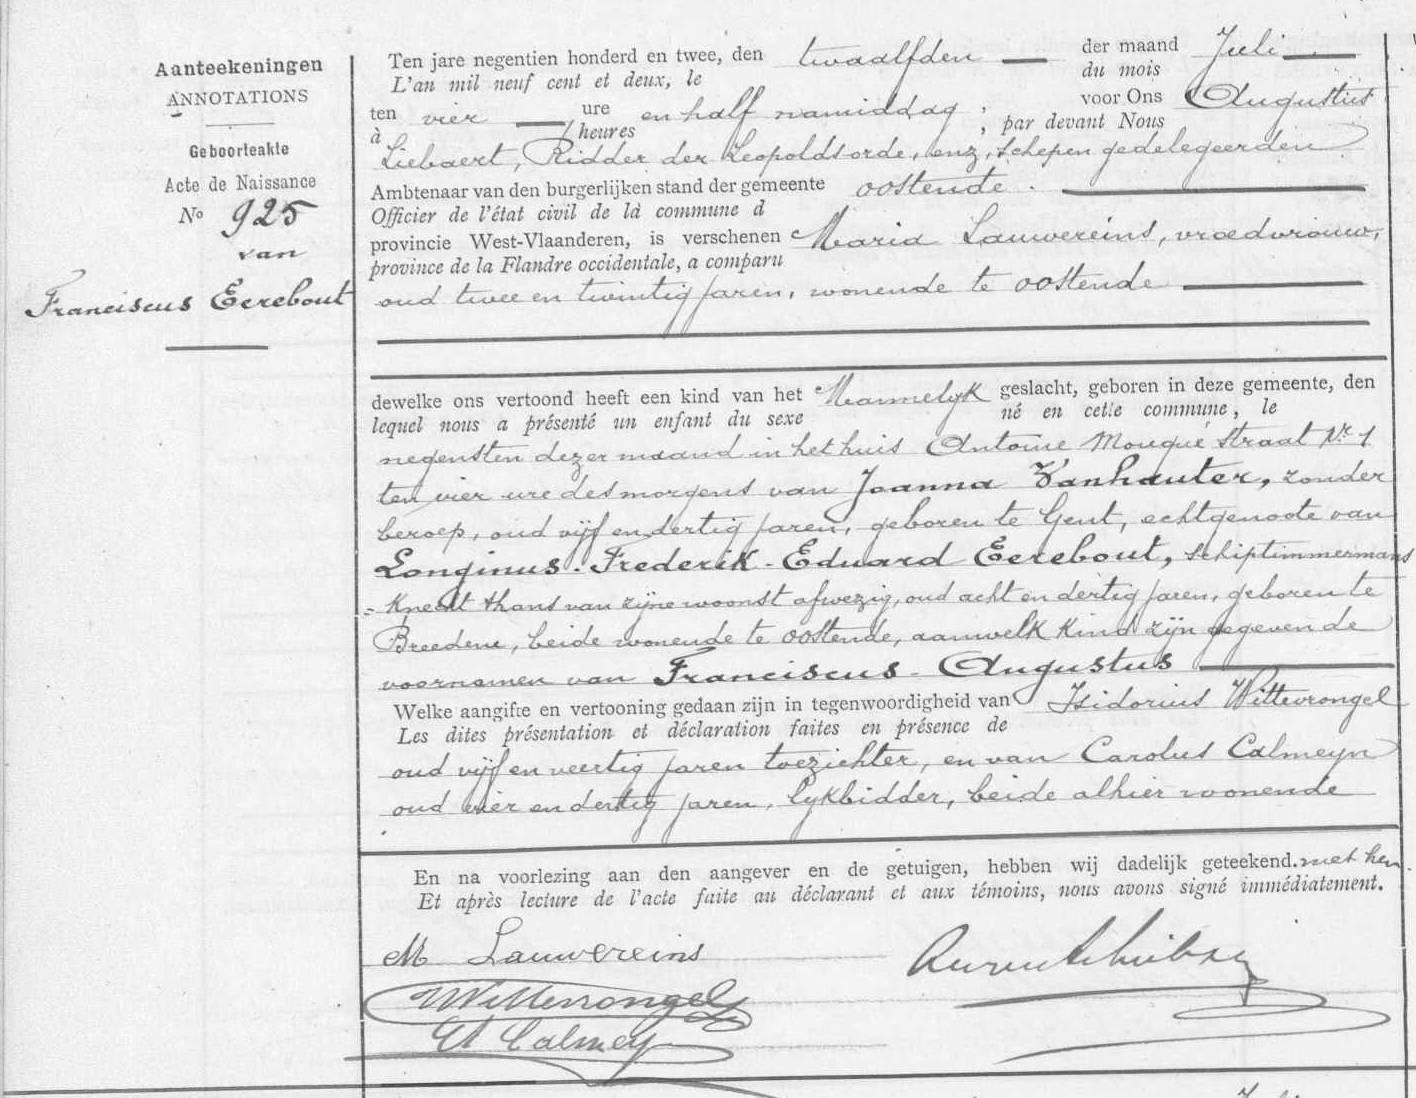 Aanteekeningen
ANNOTATIONS
Geboorteakte
Acte de Naissance
No 925
van
Franciscus Eerebout
Ten jare negentien honderd en twee, den twaalfden der maand Juli
L'an mil neuf cent et deux, le du mois
ten vier ure en half namiddag, voor Ons Augustus
à heures , par devant Nous
Liebaert, Ridder der Leopoldsorde, enz, schepen gedelegeerden
Ambtenaar van den burgerlijken stand der gemeente oostende.
Officier de l'état civil de là commune d
provincie West-Vlaanderen, is verschenen Maria Lauwereins, vroedvrouw,
province de la Flandre occidentale, a comparu
oud twee en twintig jaren, wonende te oostende
dewelke ons vertoond heeft een kind van het Mannelyk geslacht, geboren in deze gemeente, den
lequel nous a présenté un enfant du sexe né en cette commune, le
negensten dezer maand in het huis Antoine Mouqué straat Nr 1
ten vier ure des morgens van Joanna Vanhauter, zonder
beroep, oud vijf en dertig jaren, geboren te Gent, echtgenoote van
Longinus-Frederik-Eduard Eerebout, schiptimmermans
-knecht thans van zijne woonst afwezig, oud acht en dertig jaren, geboren te
Breedene, beide wonende te oostende, aan welk kind zijn gegeven de
voornamen van Franciscus-Augustus
Welke aangifte en vertooning gedaan zijn in tegenwoordigheid van Isidorius Wittevrongel
Les dites présentation et déclaration faites en présence de
oud vijf en veertig jaren toezichter, en van Carolus Calmeyn
oud vier en dertig jaren, lykbidder, beide alhier wonende
En na voorlezing aan den aangever en de getuigen, hebben wij dadelijk geteekend. met hen.
Et après lecture de l'acte faite au déclarant et aux témoins, nous avons signé immédiatement.
M Lauwereins
Wittevrongel